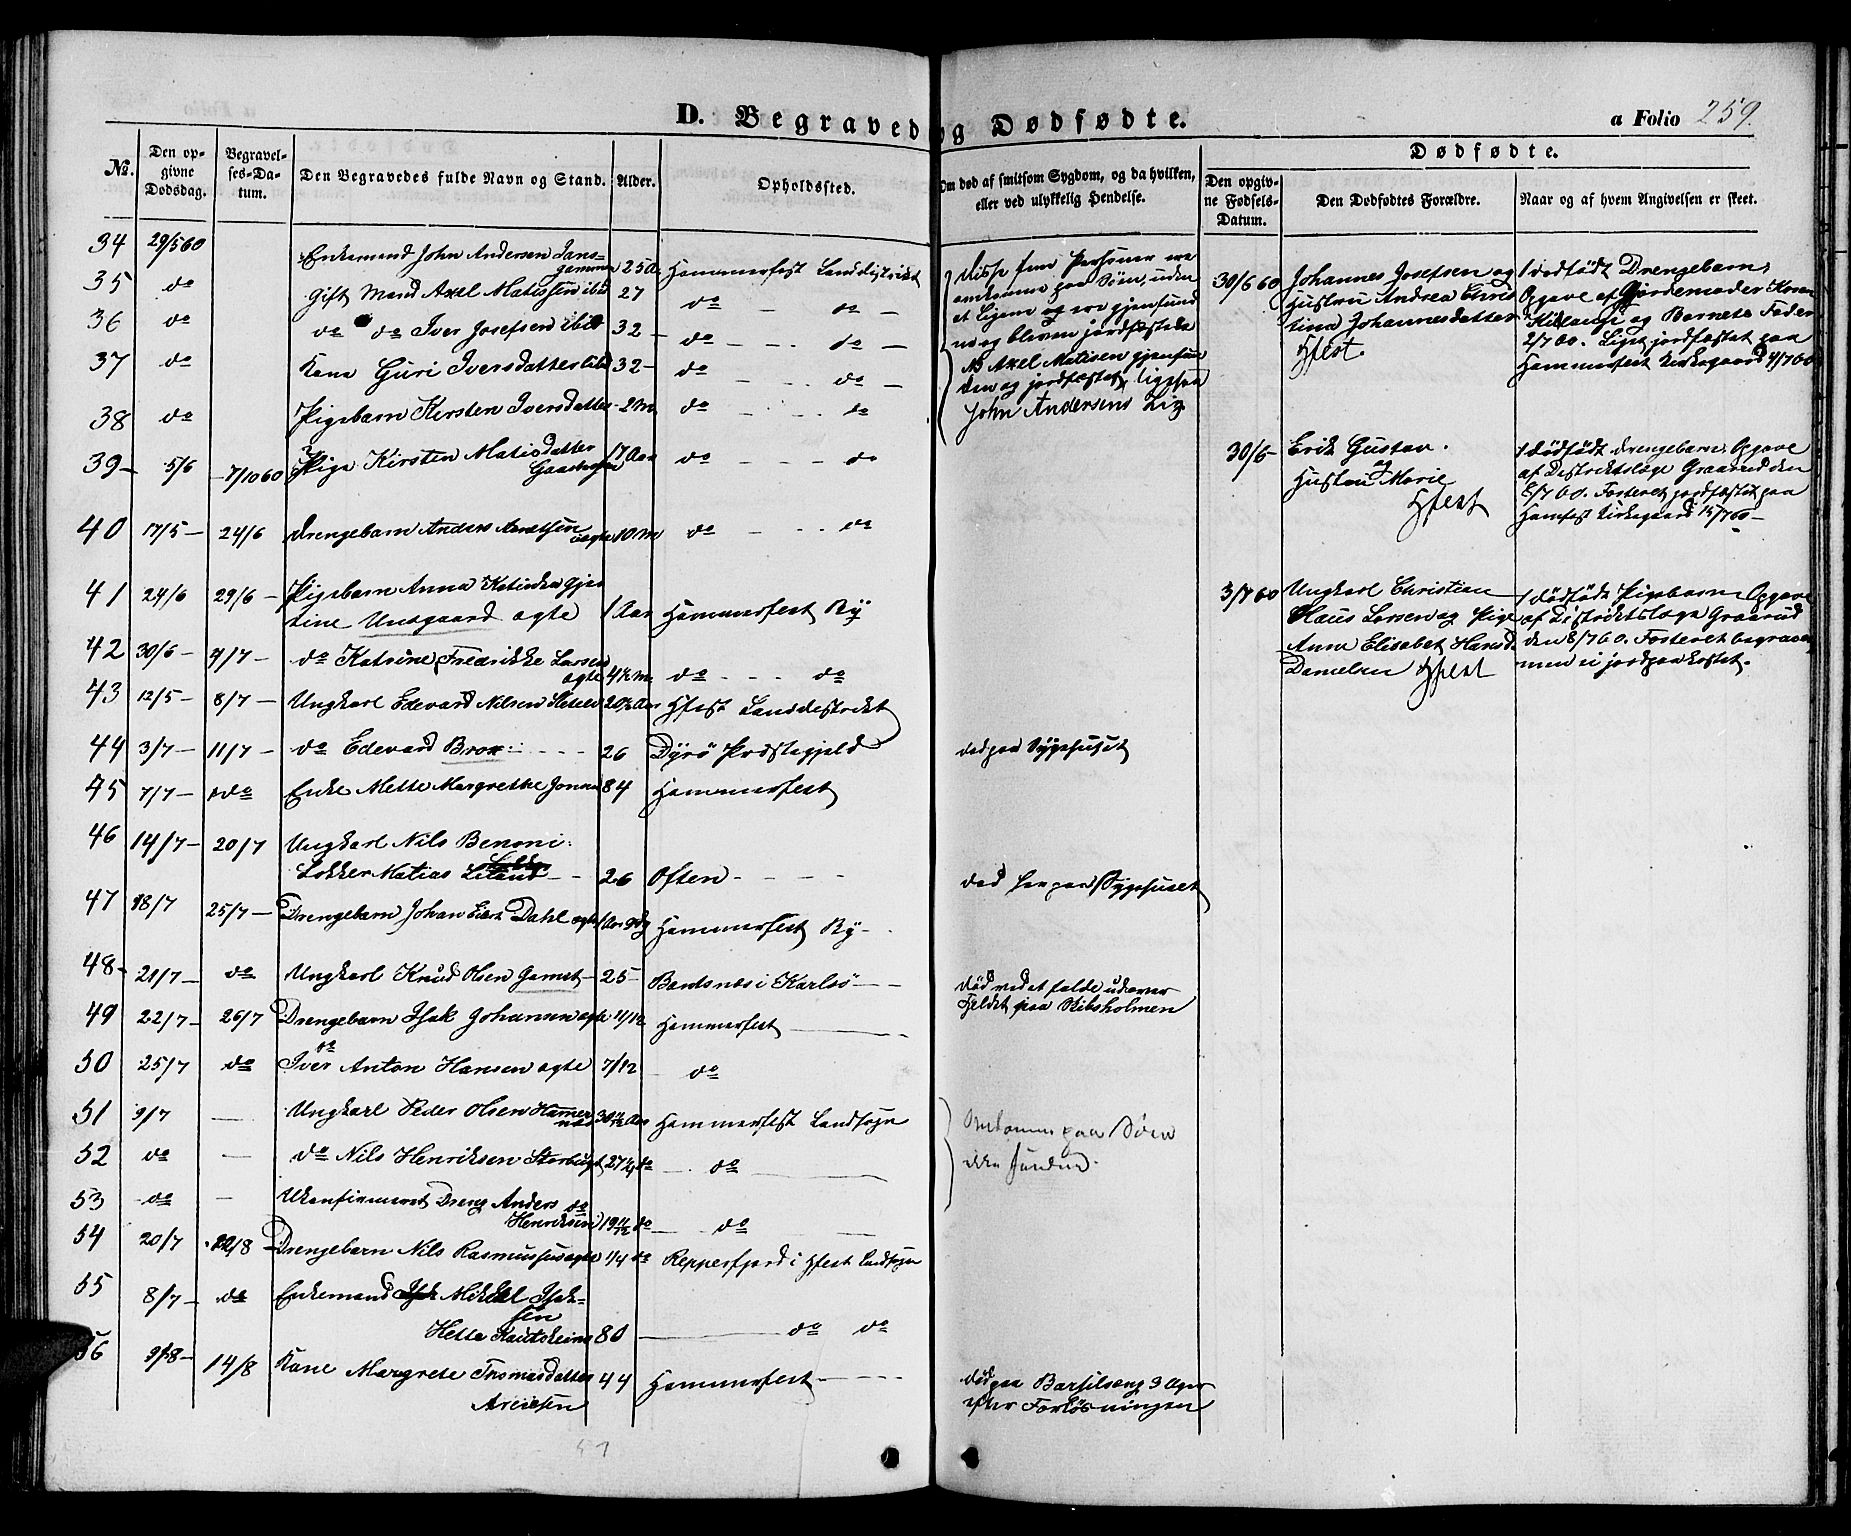 D. Begravede og Dødfødte.
a Folio 259.
No.
Den opgivne Dødsdag.
Begravelses-Datum.
Den Begravedes fulde Navn og Stand.
Alder.
Opholdssted.
Om død af smitsom Sygdom, og da hvilken, eller ved ulykkelig Hendelse.
Dødfødte.
Den opgivne Fødsels-Datum.
Den Dødfødtes Forældre.
Naar og af hvem Angivelsen er skeet.
34 29/5 60 Enkemand John Andersen 25 Hammerfest Landdistrikt
35 do Gift Mand Axel Matissen ibid 27 do - do -
36 do do do Iver Josefsen ibid 32 - do - - do -
37 do Kone Guri Iversdatter ibid 32 - do - - do -
38 do Pigebarn Kirsten Iversdatter 2 m do - - do
39 - 5/6 - 7/10 60 Pige Kirsten Matisdatter 17 Aar do - - do
40 17/5 - 24/6 Drengebarn Anders ægte 10 m do - - do
41 24/6 29/6 - Pigebarn Anna Katinka
tine Unsgaard ægte 1 Aar Hammerfest By
42 30/6 - 4/7 - do Katrine Fredrikke Larsen
ægte 4½ m do - - do
43 12/5 - 8/7 - Ungkarl Edevard Nilsen Hfest Landdestrikt
44 3/7 - 11/7 - do Edevard Brox 26 Dyrö Præstegjeld
45 7/7 - do Enke Mette Margrethe 84 Hammerfest
46 14/7 - 20/7 Ungkarl Nils Benoni
Matias 26 Often - - - -
47 18/7 25/7 - Drengebarn Johan Dahl ægte Hammerfest By -
48 - 21/7 - do Ungkarl Knud Olsen Gamst - 25 - i Karlsö - -
49 22/7 - 26/7 Drengebarn Isak Johansen ægte 11/12 Hammerfest
50 25/7 do do Iver Anton Hansen ægte 7/12 do
51 9/7 - Ungkarl Peder Olsen Hammerfest Landsogn
52 do - do Nils Henriksen 27 do
53 do - Ukonfirmeret Dreng Anders do
Henriksen do - do
54 20/7 22/8 Drengebarn Nils Rasmussen ægte 1/4 do Repperfjord i Hfest Landsogn
55 8/7 - do Enkemand Mikkel Isaksen
Hætta Kautokeino 80 do do
56 9/8 - 14/8 Kone Margrete Thomasdatter 44 Hammerfest - - - -
51
Disse fem Personer ere
omkomne paa Søen, uden
at Ligene ere gjenfund
ne og bleven jordfæstede
NB Axel Matisen gjenfun
den og jordfæstet, ligesaa
John Andersens Lig
død paa Sygehuset
død her paa Sygehuset
død ved at falde udover
Fjeldet paa Ribsholmen
Omkommen paa Søen
ikke funden.
død paa Barselseng 3 Uger
efter Forløsningen
30/6 60 Johannes Josefsen og
Hustru Andrea Chris
tina Johannesdatter
Hfest.
1 dødfödt Drengebarn,
Opgave af Gjordemoder
og Barnets Fader
2/7 60. Liget jordfæstet paa
Hammerfest Kirkegaard 4/7 60
30/6 - Erik Gustav
og
Hustru Marie
Hfest
1 dødfödt Drengebarn, Opgave
af Distriktslæge Graarud den
8/7 60. Fosteret jordfæstet paa
Hamfest Kirkegaard 15/7 60 -
3/7 60 Ungkarl Christian
Claus Larsen og Pige
Anna Elisabet
Danielsen Hfest
1 dødfödt Pigebarn Opgave
af Distriktslæge Graarud
den 8/7 60. Fosteret begravet
men ei jordpaakastet.